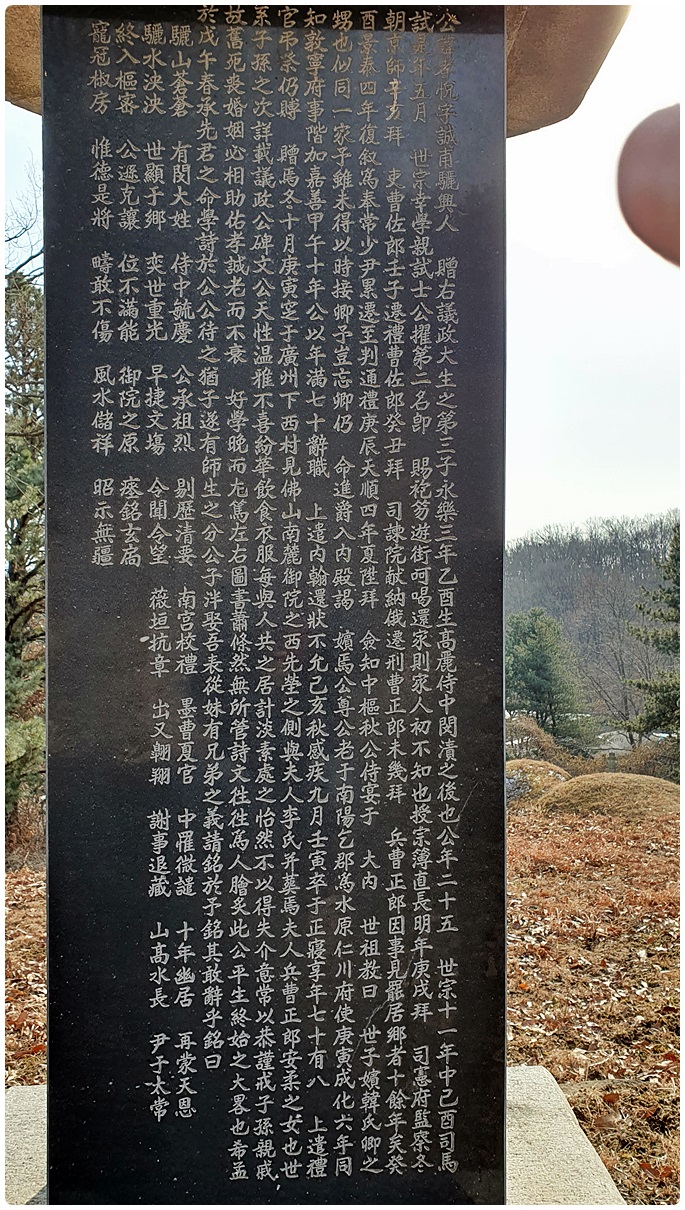 公諱孝悅字誠甫驪興人 贈右議政大生之第三子永樂三年乙酉生高麗侍中閔漬之後也公年二十五 世宗十一年中己酉司馬
試是年五月 世宗幸學親試士公擢第二名卽 賜袍笏遊街呵喝還家則家人初不知也授宗簿直長明年庚戌拜 司憲府監察冬
朝京師辛亥拜 吏曹佐郎壬子遷禮曹佐郎癸丑拜 司諫院献納俄遷刑曹正郎未幾拜 兵曹正郎因事見罷居鄕者十餘年矣癸
酉景泰四年復敘爲奉常少尹累遷至判通禮庚辰天順四年夏陞拜 僉知中樞秋公侍宴于 大內 世祖敎曰 世子嬪韓氏卿之
甥也似同一家予雖未得以時接卿予豈忘卿仍 命進爵入內殿謁 嬪焉公尊公老于南陽乞郡爲水原仁川府使庚寅成化六年同
知敦寧府事階加嘉善甲午十年公以年滿七十辭職 上遣內翰還狀不允己亥秋感疾九月壬寅卒于正寢享年七十有八 上遣禮
官弔祭仍賻 贈焉冬十月庚寅窆于廣州下西村見佛山南麓御院之西先塋之側與夫人李氏并葬焉夫人兵曹正郎安柔之女也世
系子孫之次詳載議政公碑文公天性温雅不喜紛華飮食衣服每與人共之居計淡素處之怡然不以得失介意常以恭謹戒子孫親戚
故舊死喪婚姻必相助佑孝誠老而不衰 好學晚而尤篤左右圖書蕭條然無所管詩文徃徃爲人膾炙此公平生終始之大畧也希孟
於戊午春承先君之命學詩於公公待之猶子遂有師生之分公子泮娶吾表從妹有兄弟之義請銘於予銘其敢辭乎銘曰
驪山蒼蒼 有閔大姓 侍中毓慶 公承祖烈 剔歷清要 南宮校禮 墨曹夏官 中罹微譴 十年幽居 再蒙天恩
驪水泱泱 世顯于鄕 奕世重光 早捷文塲 令聞令望 薇垣抗章 出又翺翔 謝事退藏 山高水長 尹于大常
終入樞密 公遜克讓 位不滿能 御院之原 瘞銘玄扃
寵冠椒房 惟德是將 疇敢不傷 風水儲祥 昭示無疆